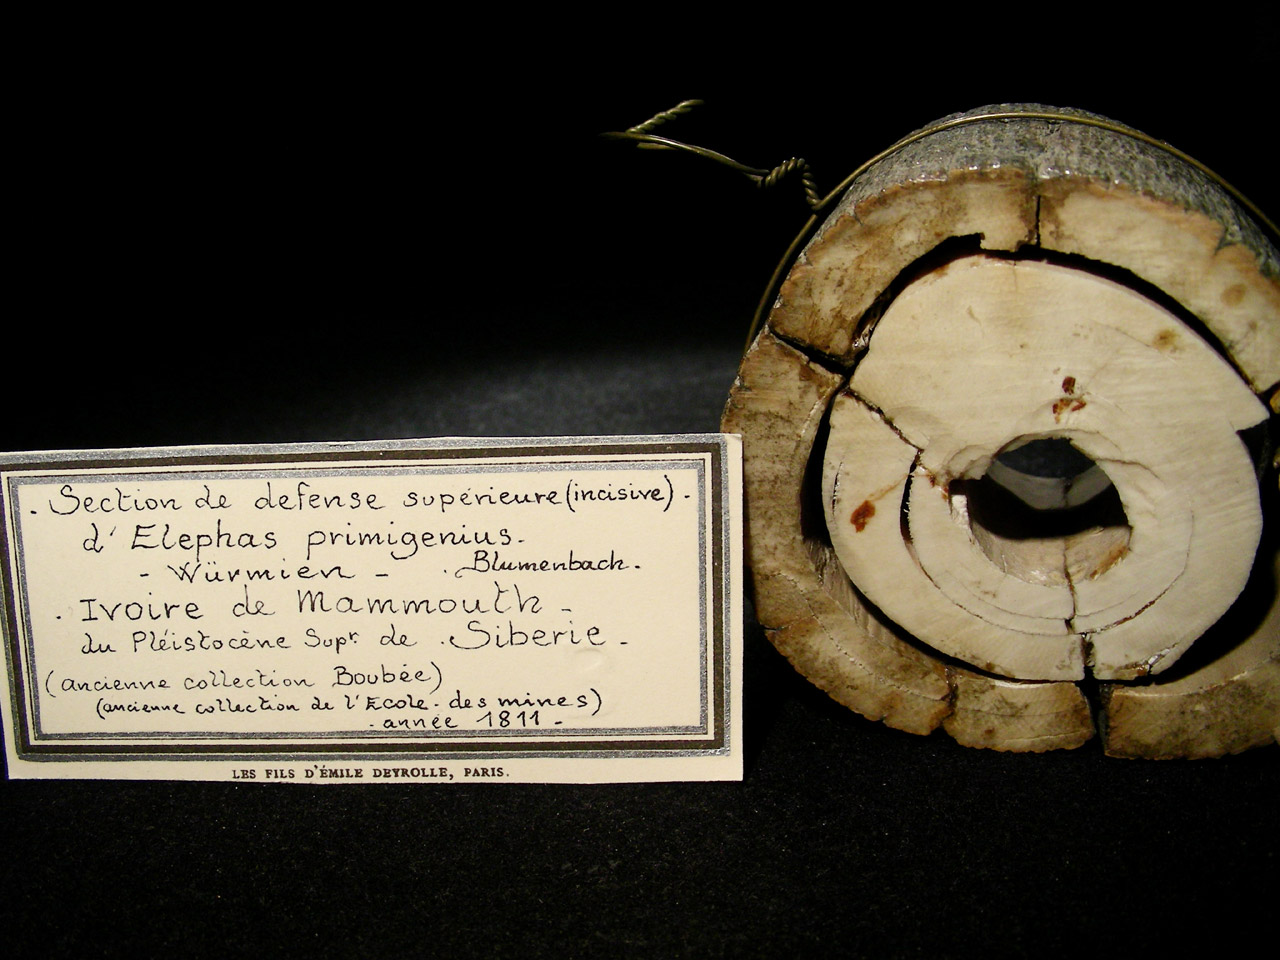 . Section de defense supérieure (incisive) .
d' Elephas primigenius.
- Würmien - . Blumenbach .
. Ivoire de Mammouth -
du Pléistocène Supr de . Siberie -
(ancienne collection Boubée)
(ancienne collection de l'Ecole . des mines)
- année 1811 -
LES FILS D'ÉMILE DEYROLLE, PARIS.